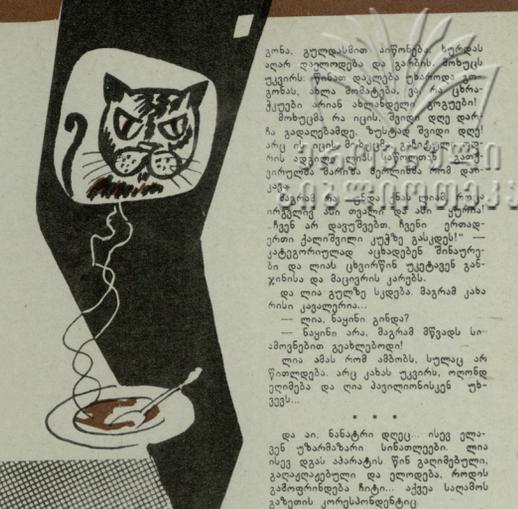 გონა, გულდასმით აიწონება. ხურდას
აღარ დაელოდება და გარბის. მოხუცს
უკვირს: წინათ დაკლება უხაროდა გო-
გონას, ახლა მომატება, ვაი რა ცხრა-
ჰკუები არიან ახლანდელი გოგოები!
მოხუცმა რა იცის, შვიდი დღე დარ-
ჩა გადაღებამდე, ზუსტად შვიდი დღე!
არც ის იცის,
რომ დაი-
მაგრამ რა
ირგვლივ ამ თვალი და ამ ყურია!
„ჩვენ არ დავუშვებთ, ჩვენი ერთად-
ერთი ქალიშვილი კუჭზე გასკდეს!“ —
კატეგორიულად აცხადებენ შინაურე-
ბი და ლიას ცხვირწინ უკეტავენ გან-
ჯინისა და მაცივრის კარებს.
და ლია გულზე სკდება. მაგრამ კახა
რისი კავალერია...
— ლია, ნაყინი გინდა?
— ნაყინი არა, მაგრამ მწვადს სი-
ამოვნებით გეახლებოდი!
ლია ამას რომ ამბობს, სულაც არ
წითლდება. არც კახას უკვირს, ოღონდ
ეღიმება და ღია პავილიონისკენ უხ-
ვევს...
* * *
და აი, ნანატრი დღეც... ისევ ელა-
ვენ უზარმაზარი სინათლეები. ლია
ისევ დგას აპარატის წინ გაღიმებული,
გაღაჟღაჟებული და ელოდება, როდის
გამოფრინდება ჩიტი... აქვეა საღამოს
გაზეთის კორესპონდენტიც